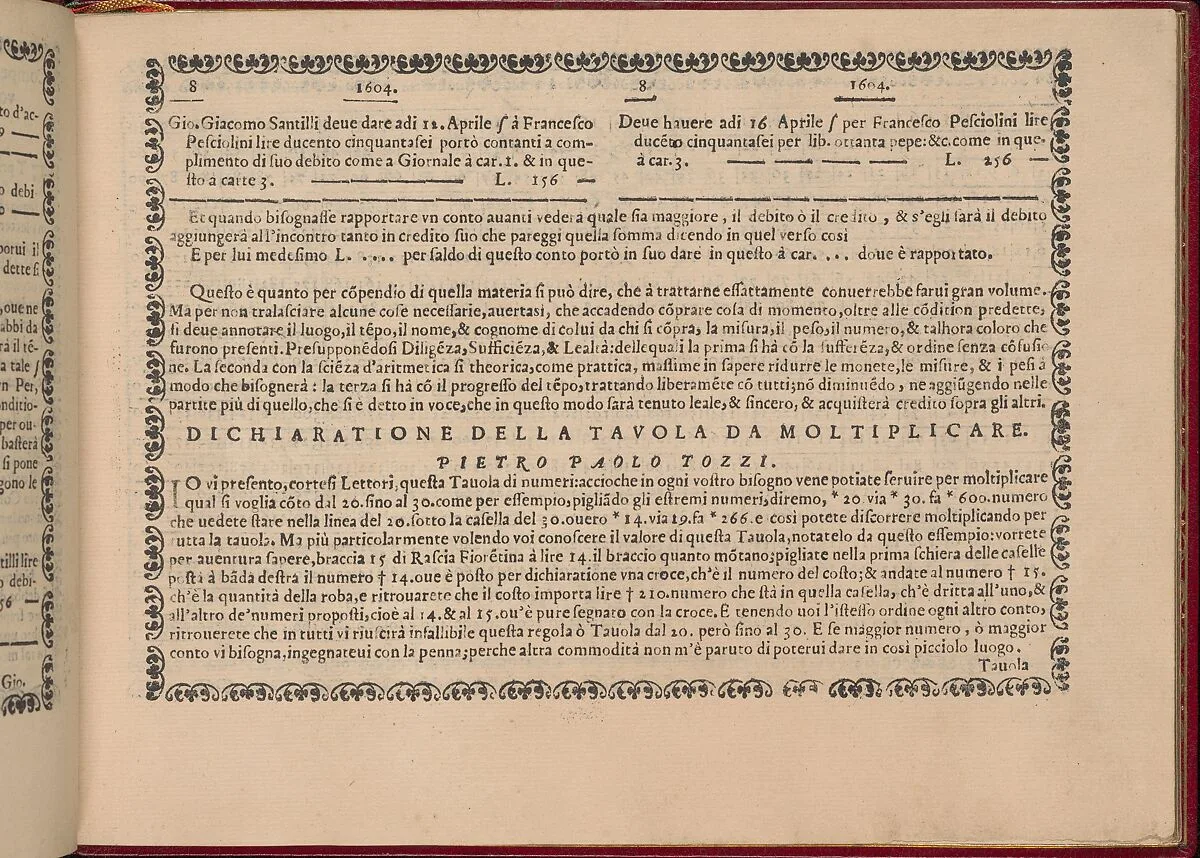 to d'ac-
9
o debi
porui il
dette si
,oue ne
abbi da
rà il té-
a tale ʃ
n Per,
onditio-
per ou-
basterà
si pone
gono le
tilli lire
o debi-
56 —
Gio.
8 1604.
Gio. Giacomo Santilli deue dare adi 12. Aprile ʃ à Francesco
Pesciolini lire ducento cinquantasei portò contanti a com-
plimento di suo debito come a Giornale à car. 1. & in que-
sto à carte 3. L. 156 —
8 1604.
Deue hauere adi 16 Aprile ʃ per Francesco Pesciolini lire
ducéto cinquantasei per lib. ottanta pepe: &c. come in que-
à car. 3. L. 256 —
Et quando bisognasse rapportare vn conto auanti vederà quale sia maggiore, il debito ò il credito, & s'egli sarà il debito
aggiungerà all'incontro tanto in credito suo che pareggi quella somma dicendo in quel verso cosi
E per lui medesimo L. . ... per saldo di questo conto portò in suo dare in questo à car. ... doue è rapportato.
Questo è quanto per cõpendio di quella materia si può dire, che à trattarne essattamente conuerrebbe farui gran volume.
Ma per non tralasciare alcune cose necessarie, auertasi, che accadendo cõprare cosa di momento, oltre alle cõdition predette,
si deue annotare il luogo, il tépo, il nome, & cognome di colui da chi si cõpra, la misura, il peso, il numero, & talhora coloro che
furono presenti. Presupponédosi Diligéza, Sufficiéza, & Lealtà: delle quali la prima si hà cõ la sufferéza, & ordine senza cõfusio
ne. La seconda con la sciéza d'aritmetica si theorica, come prattica, massime in sapere ridurre le monete, le misure, & i pesi à
modo che bisognerà : la terza si hà cõ il progresso del tépo, trattando liberaméte cõ tutti; nõ diminuédo, ne aggiũgendo nelle
partite più di quello, che si è detto in voce, che in questo modo sarà tenuto leale, & sincero, & acquisterà credito sopra gli altri.
DICHIARATIONE DELLA TAVOLA DA MOLTIPLICARE.
PIETRO PAOLO TOZZI.
IO vi presento, cortesi Lettori, questa Tauola di numeri: accioche in ogni vostro bisogno vene potiate seruire per moltiplicare
qual si voglia cõto dal 20. fino al 30. come per essempio, pigliãdo gli estremi numeri, diremo, * 20 via * 30. fa * 600. numero
che uedete stare nella linea del 20. sotto la casella del 30. ouero * 14. via 19. fa * 266. e così potete discorrere moltiplicando per
tutta la tauola. Ma più particolarmente volendo voi conoscere il valore di questa Tauola, notatelo da questo essempio: vorrete
per auentura sapere, braccia 15 di Rascia Fiorétina à lire 14. il braccio quanto mõtano; pigliate nella prima schiera delle caselle
posta à bãda destra il numero † 14. oue è posto per dichiaratione vna croce, ch'è il numero del costo; & andate al numero † 15.
ch'è la quantità della roba, e ritrouarete che il costo importa lire † 210. numero che stà in quella casella, ch'è dritta all'uno, &
all'altro de'numeri proposti, cioè al 14. & al 15. ou'è pure segnato con la croce. E tenendo uoi l'istesso ordine ogni altro conto,
ritrouerete che in tutti vi riuscirà infallibile questa regola ò Tauola dal 20. però fino al 30. E se maggior numero, ò maggior
conto vi bisogna, ingegnateui con la penna; perche altra commodità non m'è paruto di poterui dare in così picciolo luogo.
Tauola